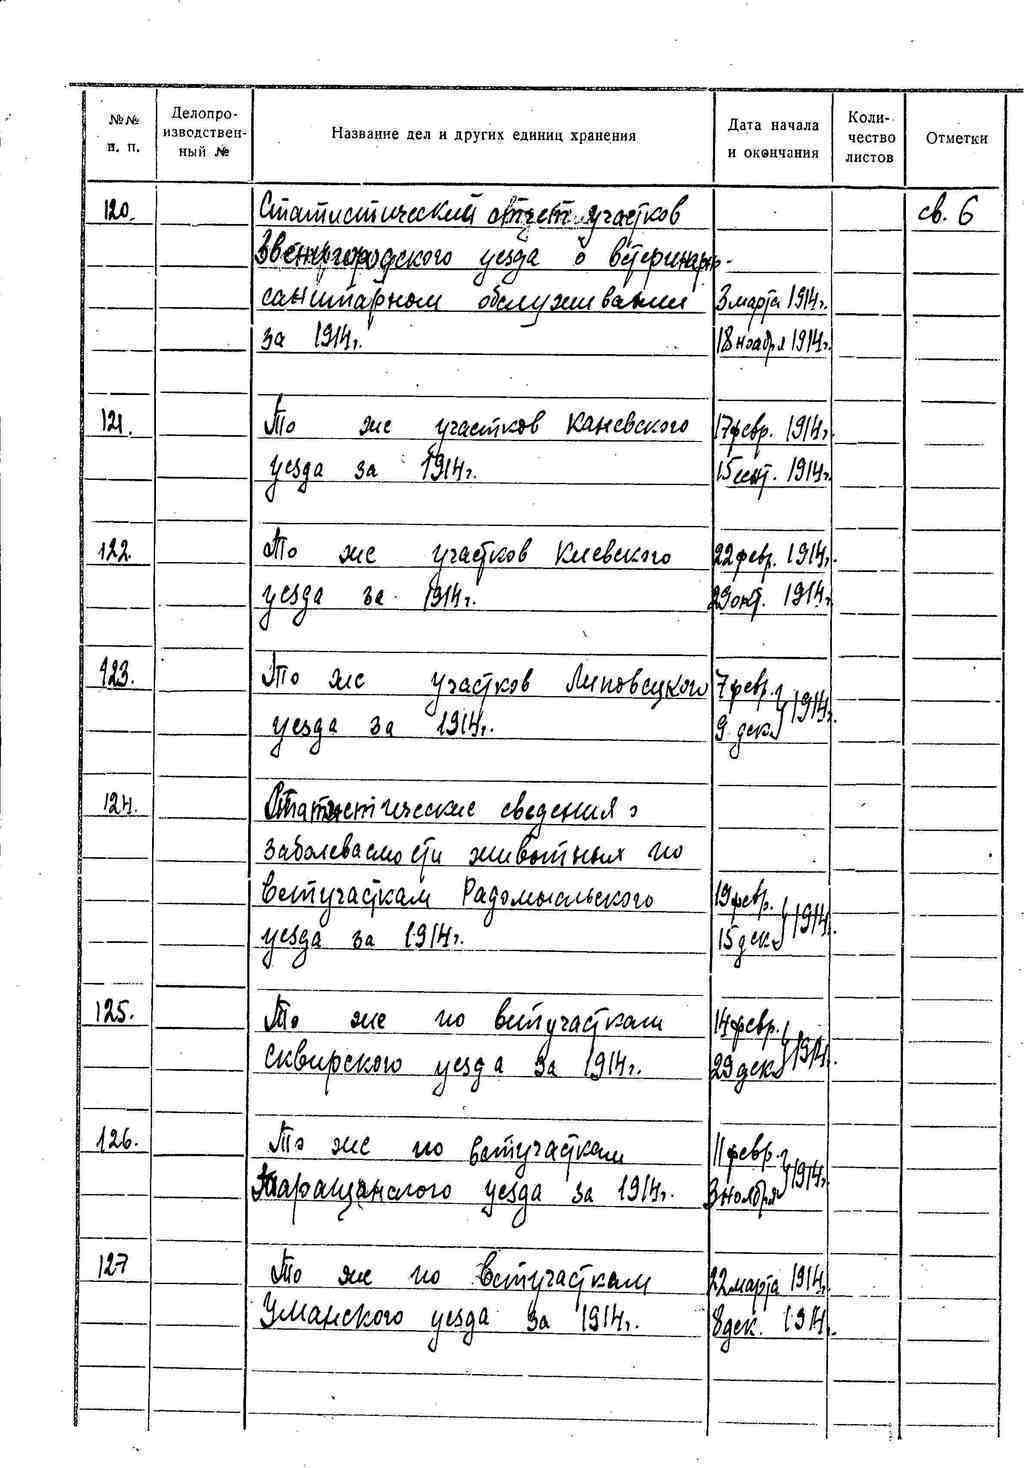 №№ н. п.
Делопро-
изводствен-
ный №
Название дел и других единиц хранения
Дата начала
и окончания
Коли-
чество
листов
Отметки
120. Статистический отчет участков св. 6
Звенигородского уезда о ветеринарно-
санитарном обслуживании 3 марта 1914г.
за 1914г. 18 ноября 1914г.
121. То же участков Каневского 17 февр. 1914г.
уезда за 1914г. 15 сент. 1914г.
122. То же участков Киевского 22 февр. 1914г.
уезда за 1914г. 29 окт. 1914г.
123. То же участков Липовецкого 7 февр. 1914г.
уезда за 1914г. 9 дек.
124. Статистические сведения о
заболеваемости животных по
ветучасткам Радомысльского 19 февр. 1914г.
уезда за 1914г. 15 дек.
125. То же по ветучасткам 14 февр. 1914г.
Сквирского уезда за 1914г. 29 дек.
126. То же по ветучасткам 11 февр. 1914г.
Таращанского уезда за 1914г. 3 ноября
127 То же по ветучасткам 22 марта 1914г.
Уманского уезда за 1914г. 8 дек. 1914г.